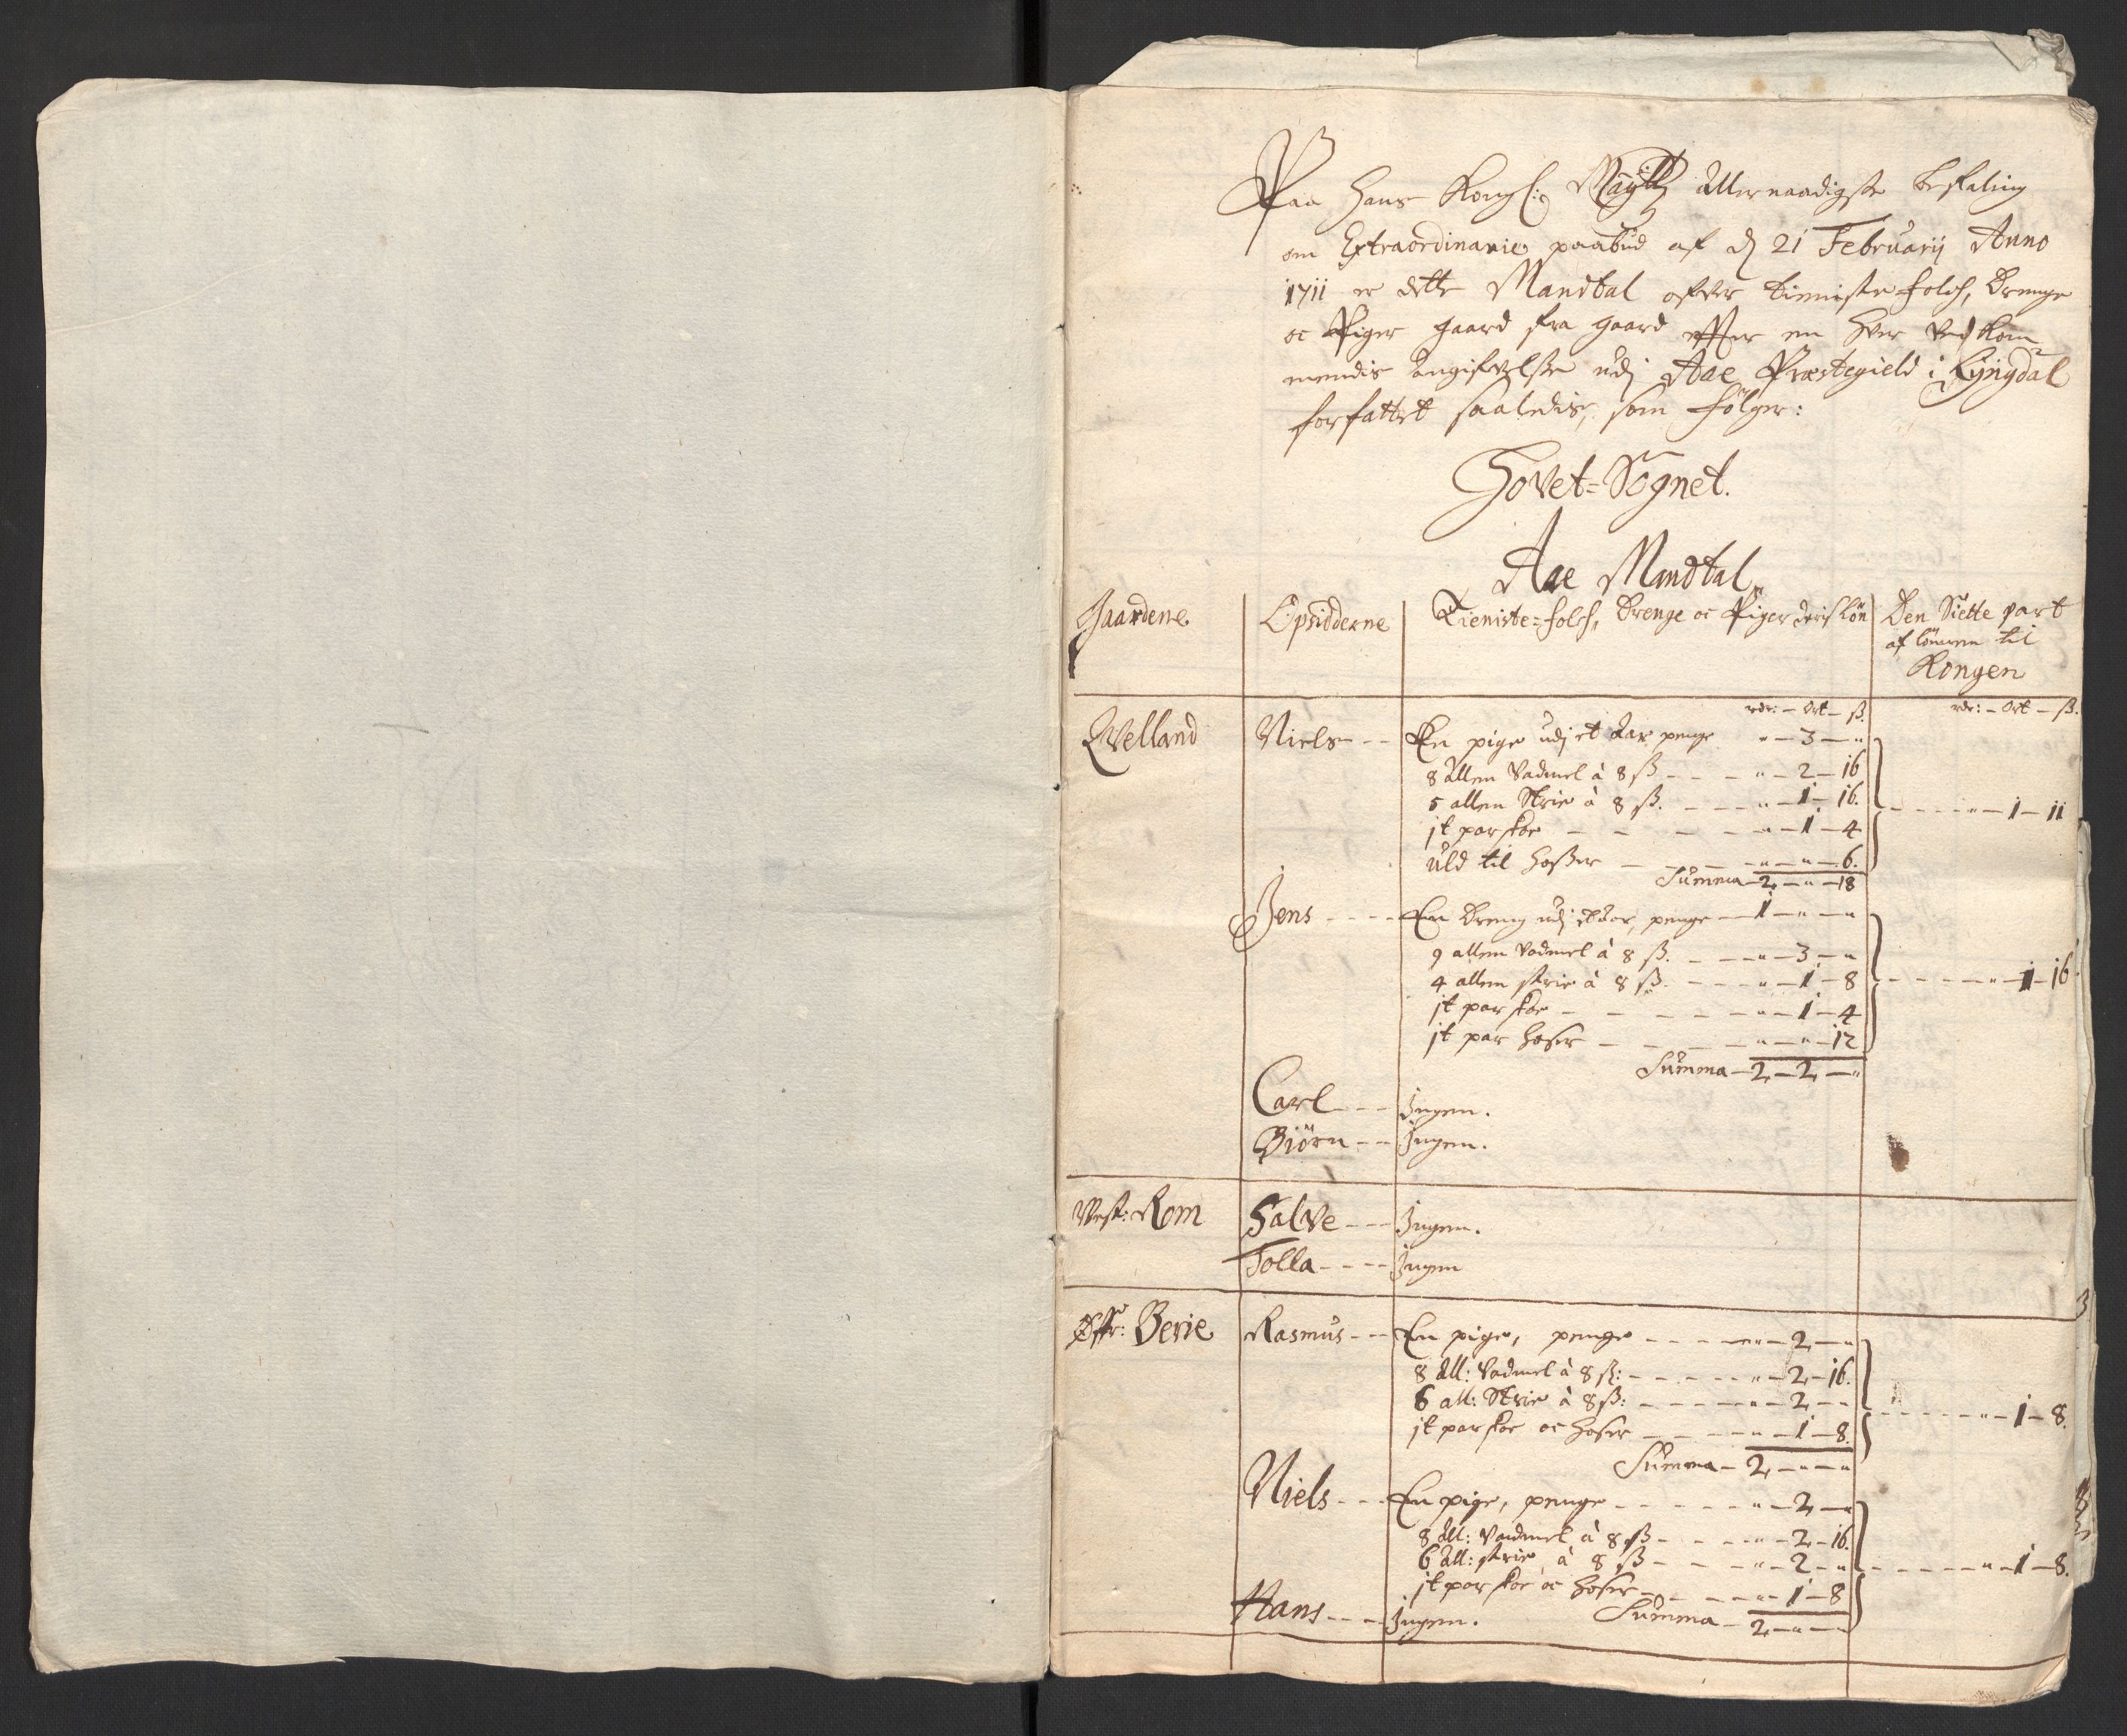 Paa Hans Kongl: Mayttz Allernaadigste befaling
om Extraordinarie paabud af d 21 Februarij Anno
1711 er dette Mandtal ofver tieniste folch, Drenge
oc Piger gaard fra gaard effter en hver vedkom-
mendis angifvelse udj Aae Præstegield i Lyngdal
forfattet saaledis, som følger:
Hovet=Sognet.
Aae Mandtal
Gaardene Opsidderne Tieniste=folch, Drenge oc Piger deris løn Den Siette part
af lønnen til
Kongen
rdr: - Ort - ß. rdr: - Ort - ß.
Qvelland Niels - - En pige udj et Aar penge " - 3 - "
8 Allen Vadmel à 8 ß - - - " - 2 - 16
5 allen Strie à 8 ß. - - - " - 1 - 16. - - - - " - 1 - 11
jt par skoe - - - - - " - 1 - 4
Uld til hoßer - - - - " - " - 6.
Summa - 2 - " - 18
Jens - - - - En Dreng udj et Aar, penge - 1 - " - "
9 allen Vadmel à 8 ß. - - - " - 3 - "
4 allen strie à 8 ß. - - - " - 1 - 8 - - - - - " - 1 - 16
jt par skoe - - - - - " - 1 - 4
jt par hoser - - - - " - " - 12
Summa - 2 - 2 - "
Carl - - - Ingen.
Biørn - - Ingen.
Vest: Rom Salve - - - Ingen.
Tolla - - - - Ingen
Øffr: Berie Rasmus - - En pige, penge - - - - " - 2 - "
8 All: Vadmel à 8 ß: - - - - - " - 2 - 16.
6 all: Strie à 8 ß: - - - - - " - 2 - "
jt par skoe oc hoser - - - - " - 1 - 8. - - - - - " - 1 - 8.
Summa - 2 - " - "
Niels - - - En pige, penge - - - - - " - 2 - "
8 All: Vadmel à 8 ß - - - - " - 2 - 16.
6 All: strie à 8 ß - - - - " - 2 - " - - - - - " - 1 - 8.
jt par skoe oc hoser - - - - " - 1 - 8
Hans - - - Ingen. Summa - 2 - " - "